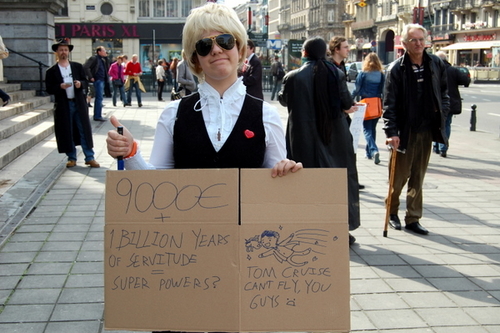 PARIS XL
9000€
+
1 BILLION YEARS
OF SERVITUDE
=
SUPER POWERS?
TOM CRUISE
CANT FLY, YOU
GUYS :C